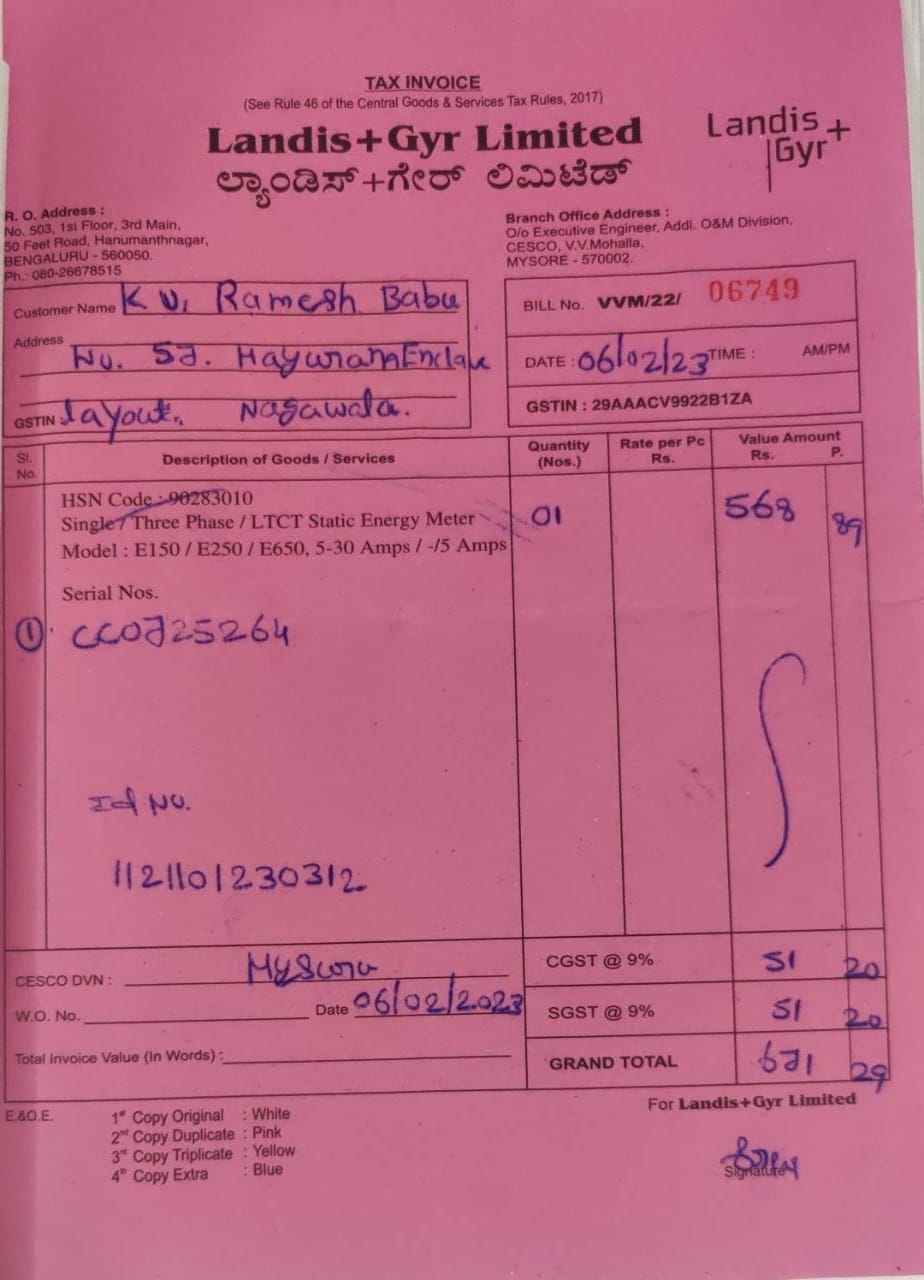 TAX INVOICE
(See Rule 46 of the Central Goods & Services Tax Rules, 2017)
Landis+Gyr Limited
ಲ್ಯಾಂಡಿಸ್+ಗೇರ್ ಲಿಮಿಟೆಡ್
Landis+
Gyr
R. O. Address :
No. 503, 1st Floor, 3rd Main,
50 Feet Road, Hanumanthnagar,
BENGALURU - 560050.
Ph.: 080-26678515
Branch Office Address :
O/o Executive Engineer, Addl. O&M Division,
CESCO, V.V.Mohalla,
MYSORE - 570002.
Customer Name K V. Ramesh Babu
Address No. 57. HayuramEnclave
GSTIN : layout. Nagawala.
BILL No. VVM/22/ 06749
DATE : 06/02/23 TIME : AM/PM
GSTIN : 29AAACV9922B1ZA
Sl. No. Description of Goods / Services Quantity (Nos.) Rate per Pc Rs. Value Amount Rs. P.
HSN Code : 90283010
Single / Three Phase / LTCT Static Energy Meter 01 568 89
Model : E150 / E250 / E650, 5-30 Amps / -/5 Amps
Serial Nos.
① CC0725264
Id No.
1121101230312
CESCO DVN : Mysuru
W.O. No. Date 06/02/2023
Total Invoice Value (In Words) :
CGST @ 9% 51 20
SGST @ 9% 51 20
GRAND TOTAL 671 29
E.&O.E.
1st Copy Original : White
2nd Copy Duplicate : Pink
3rd Copy Triplicate : Yellow
4th Copy Extra : Blue
For Landis+Gyr Limited
Signature